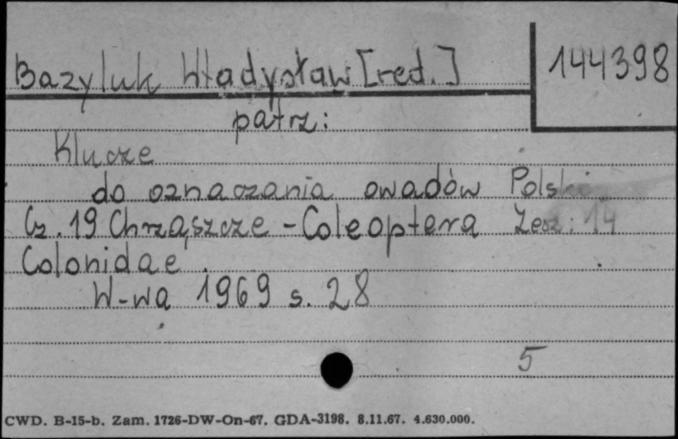 Bazyluk Władysław [red.] 144398
patrz:
Klucze
do oznaczania owadów Polski
Cz. 19 Chrząszcze - Coleoptera Zesz: 14
Colonidae.
W-wa 1969 s. 28
5
CWD. B-15-b. Zam. 1726-DW-On-67. GDA-3198. 8.11.67. 4.630.000.